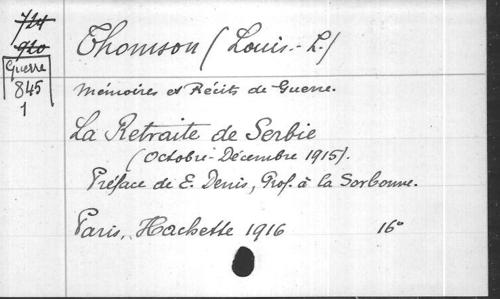 724
920
Guerre
845
1
Thomson (Louis.-L.)
Mémoires et Récits de Guerre.
La Retraite de Serbie
(Octobre-Décembre 1915).
Préface de E. Denis, Prof. à la Sorbonne.
Paris, Hachette 1916 16°